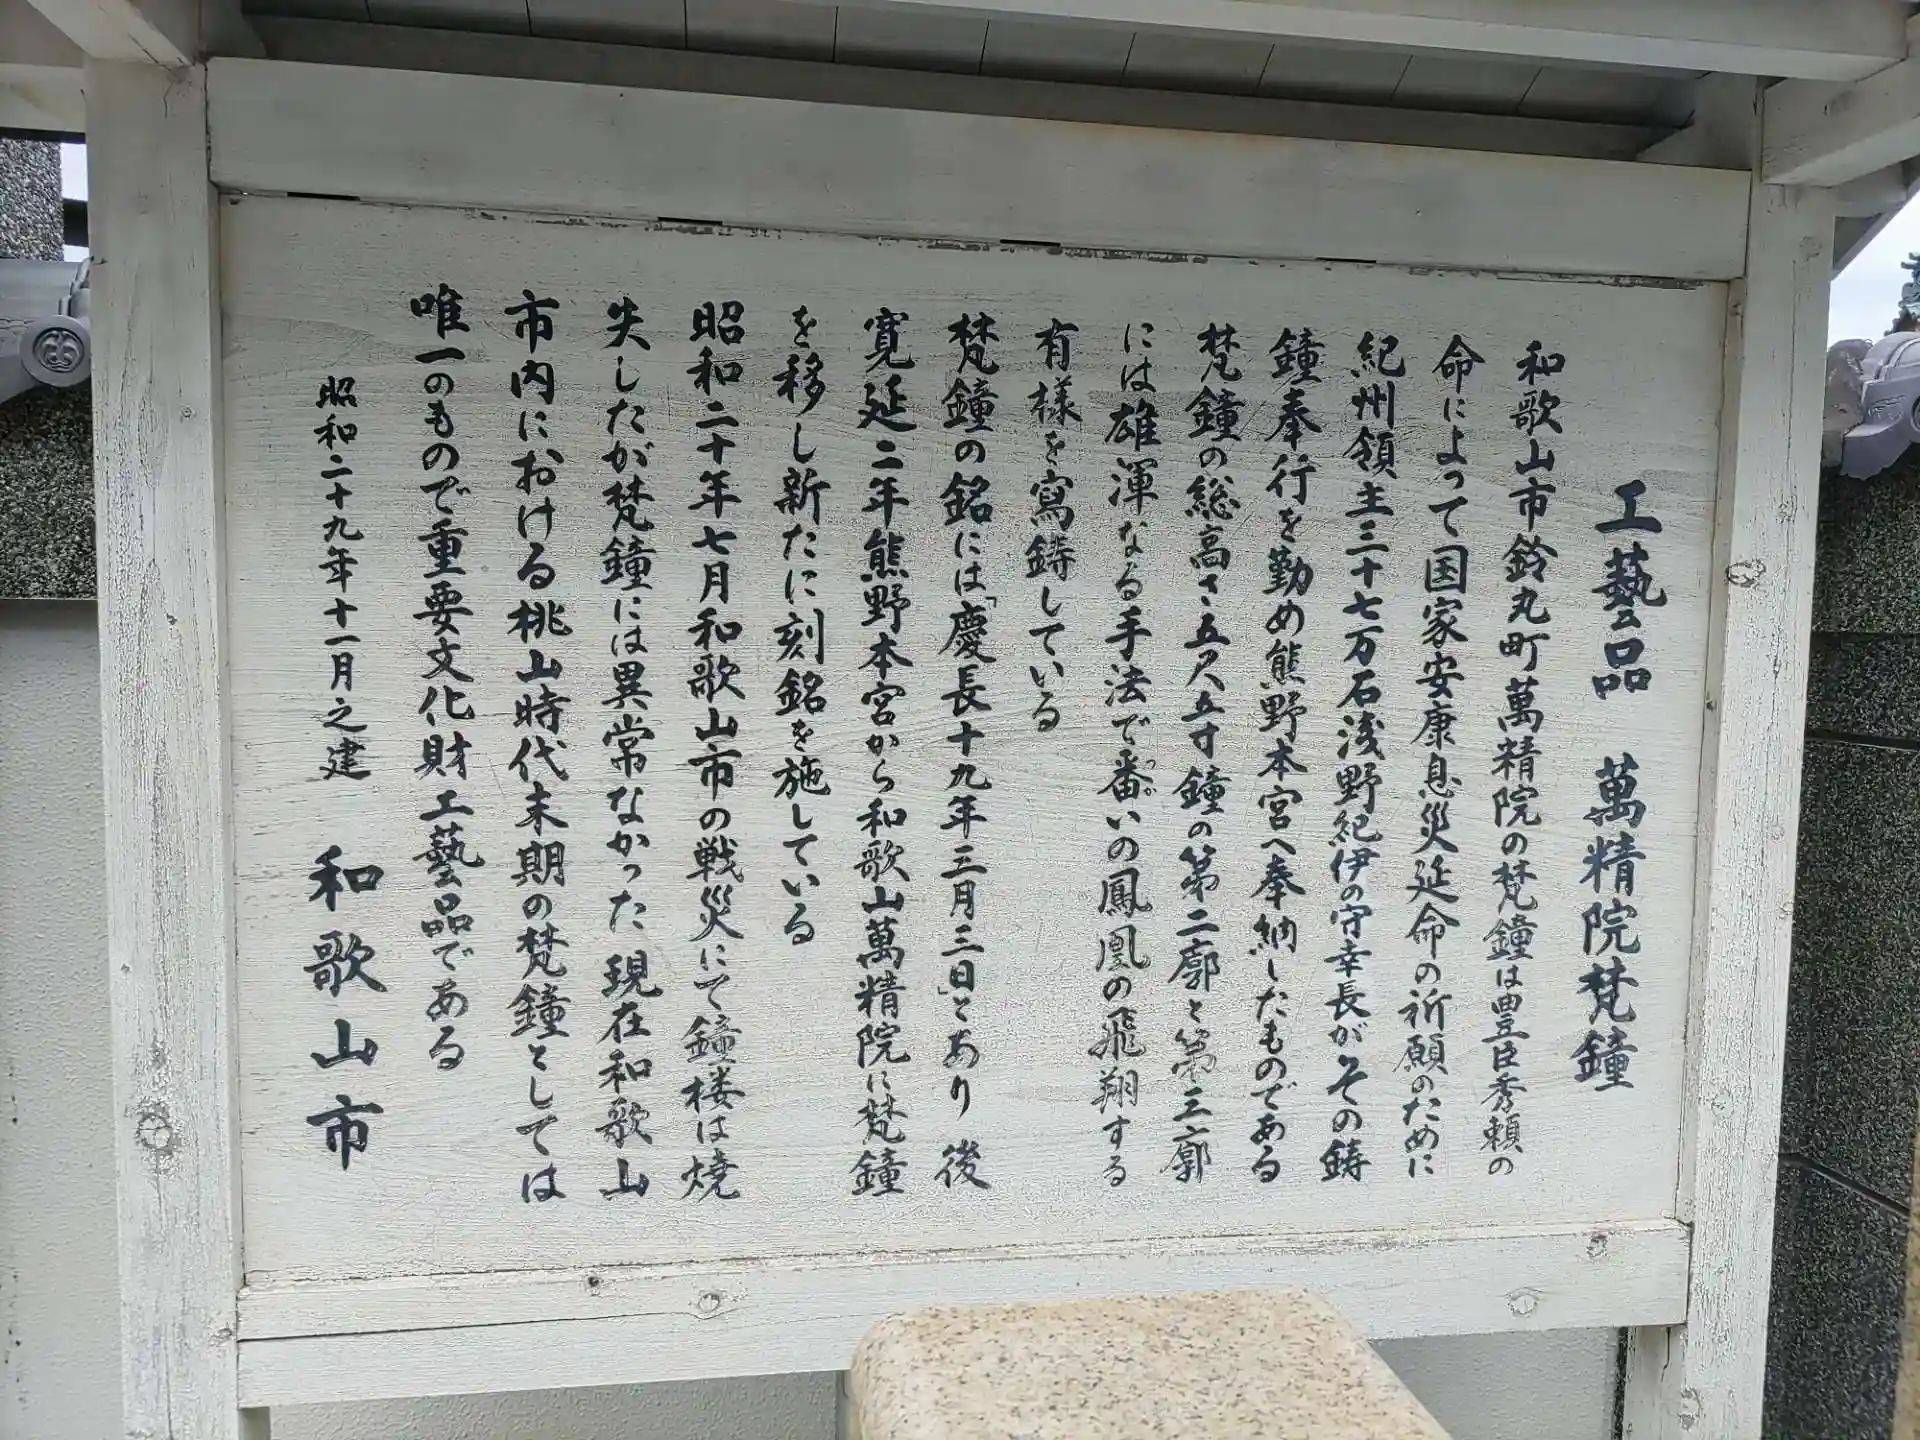 工藝品　萬精院梵鐘
和歌山市鈴丸町萬精院の梵鐘は豊臣秀頼の
命によって国家安康息災延命の祈願のために
紀州領主三十七万石浅野紀伊の守幸長がその鋳
鐘奉行を勤め熊野本宮へ奉納したものである
梵鐘の総高さ五尺五寸鐘の第二廓と第三廓
には雄渾なる手法で番いの鳳凰の飛翔する
有様を寫鋳している
梵鐘の銘には「慶長十九年三月三日」とあり　後
寛延二年熊野本宮から和歌山萬精院に梵鐘
を移し新たに刻銘を施している
昭和二十年七月和歌山市の戦災にて鐘楼は焼
失したが梵鐘には異常なかった　現在和歌山
市内における桃山時代末期の梵鐘としては
唯一のもので重要文化財工藝品である
昭和二十九年十一月之建　和歌山市